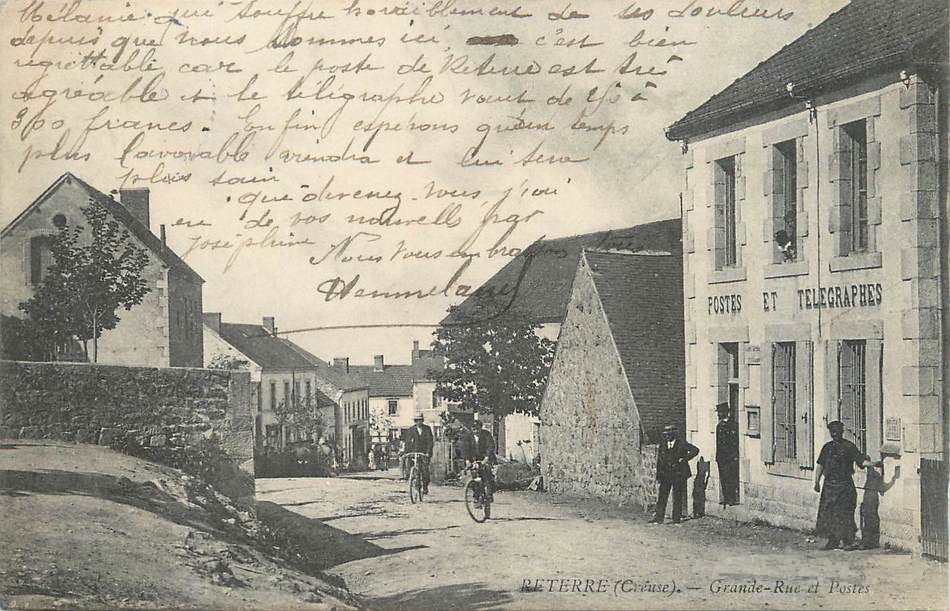 Mélanie qui souffre horriblement de ses douleurs
depuis que nous sommes ici, c'est bien
regrettable car le poste de Reterre est très
agréable et le télégraphe vaut de à
300 francs. Enfin espérons qu'un temps
plus favorable viendra et lui sera
plus sain
que devenez-vous, j'ai
eu de vos nouvelles par
Joséphine
Nous vous embrassons tous
POSTES ET TELEGRAPHES
RETERRE (Creuse). — Grande-Rue et Postes